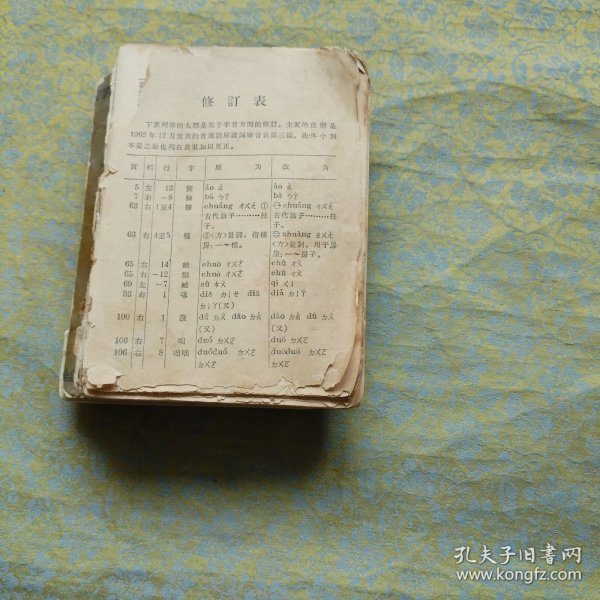 修訂表
下表列举的大都是关于字音方面的修訂。主要的依据是
1962年12月发表的普通話异讀詞审音表第三編。此外个別
不妥之处也列在表里加以更正。
頁 栏 行 字 原为 改为
5 左 13 āo ㄠ
7 右 -8 bā ㄅㄚ
63 右 1至4 幢 chuáng ㄔㄨㄤ ① ㊀ chuáng ㄔㄨㄤ
古代旗子………柱 古代旗子………柱
子。 子。
63 右 4至5 幢 ②〈方〉量詞，指楼 ㊁ zhuàng ㄓㄨㄤ
房：一～楼。 〈方〉量詞，用于房
屋：一～房子。
65 右 14 chuò ㄔㄨㄛ chù ㄔㄨ
65 右 -12 chuò ㄔㄨㄛ chù ㄔㄨ
69 右 -7 cù ㄘㄨ qī ㄑㄧ
93 右 1 嗲 diē ㄉㄧㄝ diǎ diǎ ㄉㄧㄚ
ㄉㄧㄚ(又)
100 右 1 蠹 dú ㄉㄨ dào ㄉㄠ dào ㄉㄠ dú ㄉㄨ
(又) (又)
106 右 7 duó ㄉㄨㄛ duō ㄉㄨㄛ
106 右 8 咄咄 duóduó ㄉㄨㄛ duōduō ㄉㄨㄛ
ㄉㄨㄛ ㄉㄨㄛ
孔夫子旧书网
www.kongfz.com